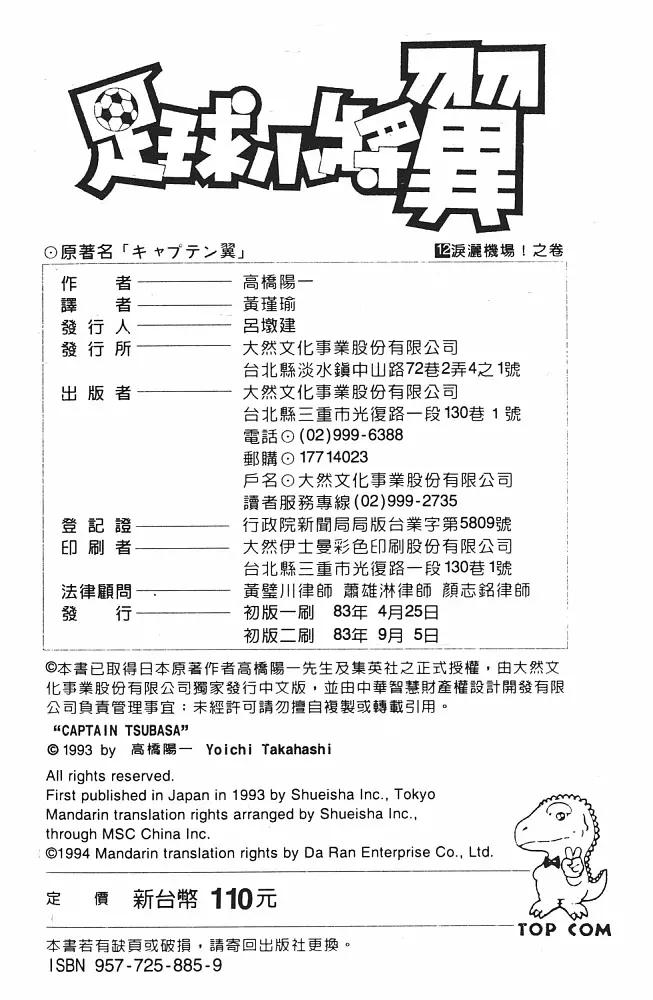 足球小將翼
⊙原著名「キャプテン翼」 12淚灑機場！之卷
作者 高橋陽一
譯者 黃瑾瑜
發行人 呂墩建
發行所 大然文化事業股份有限公司
台北縣淡水鎮中山路72巷2弄4之1號
出版者 大然文化事業股份有限公司
台北縣三重市光復路一段130巷1號
電話⊙(02)999-6388
郵購⊙17714023
戶名⊙大然文化事業股份有限公司
讀者服務專線(02)999-2735
登記證 行政院新聞局局版台業字第5809號
印刷者 大然伊士曼彩色印刷股份有限公司
台北縣三重市光復路一段130巷1號
法律顧問 黃璧川律師 蕭雄淋律師 顏志銘律師
發行 初版一刷 83年 4月25日
初版二刷 83年 9月 5日
©本書已取得日本原著作者高橋陽一先生及集英社之正式授權，由大然文
化事業股份有限公司獨家發行中文版，並由中華智慧財產權設計開發有限
公司負責管理事宜；未經許可請勿擅自複製或轉載引用。
“CAPTAIN TSUBASA”
©1993 by 高橋陽一 Yoichi Takahashi
All rights reserved.
First published in Japan in 1993 by Shueisha Inc., Tokyo
Mandarin translation rights arranged by Shueisha Inc.,
through MSC China Inc.
©1994 Mandarin translation rights by Da Ran Enterprise Co., Ltd.
定價 新台幣 110元
TOP COM
本書若有缺頁或破損，請寄回出版社更換。
ISBN 957-725-885-9